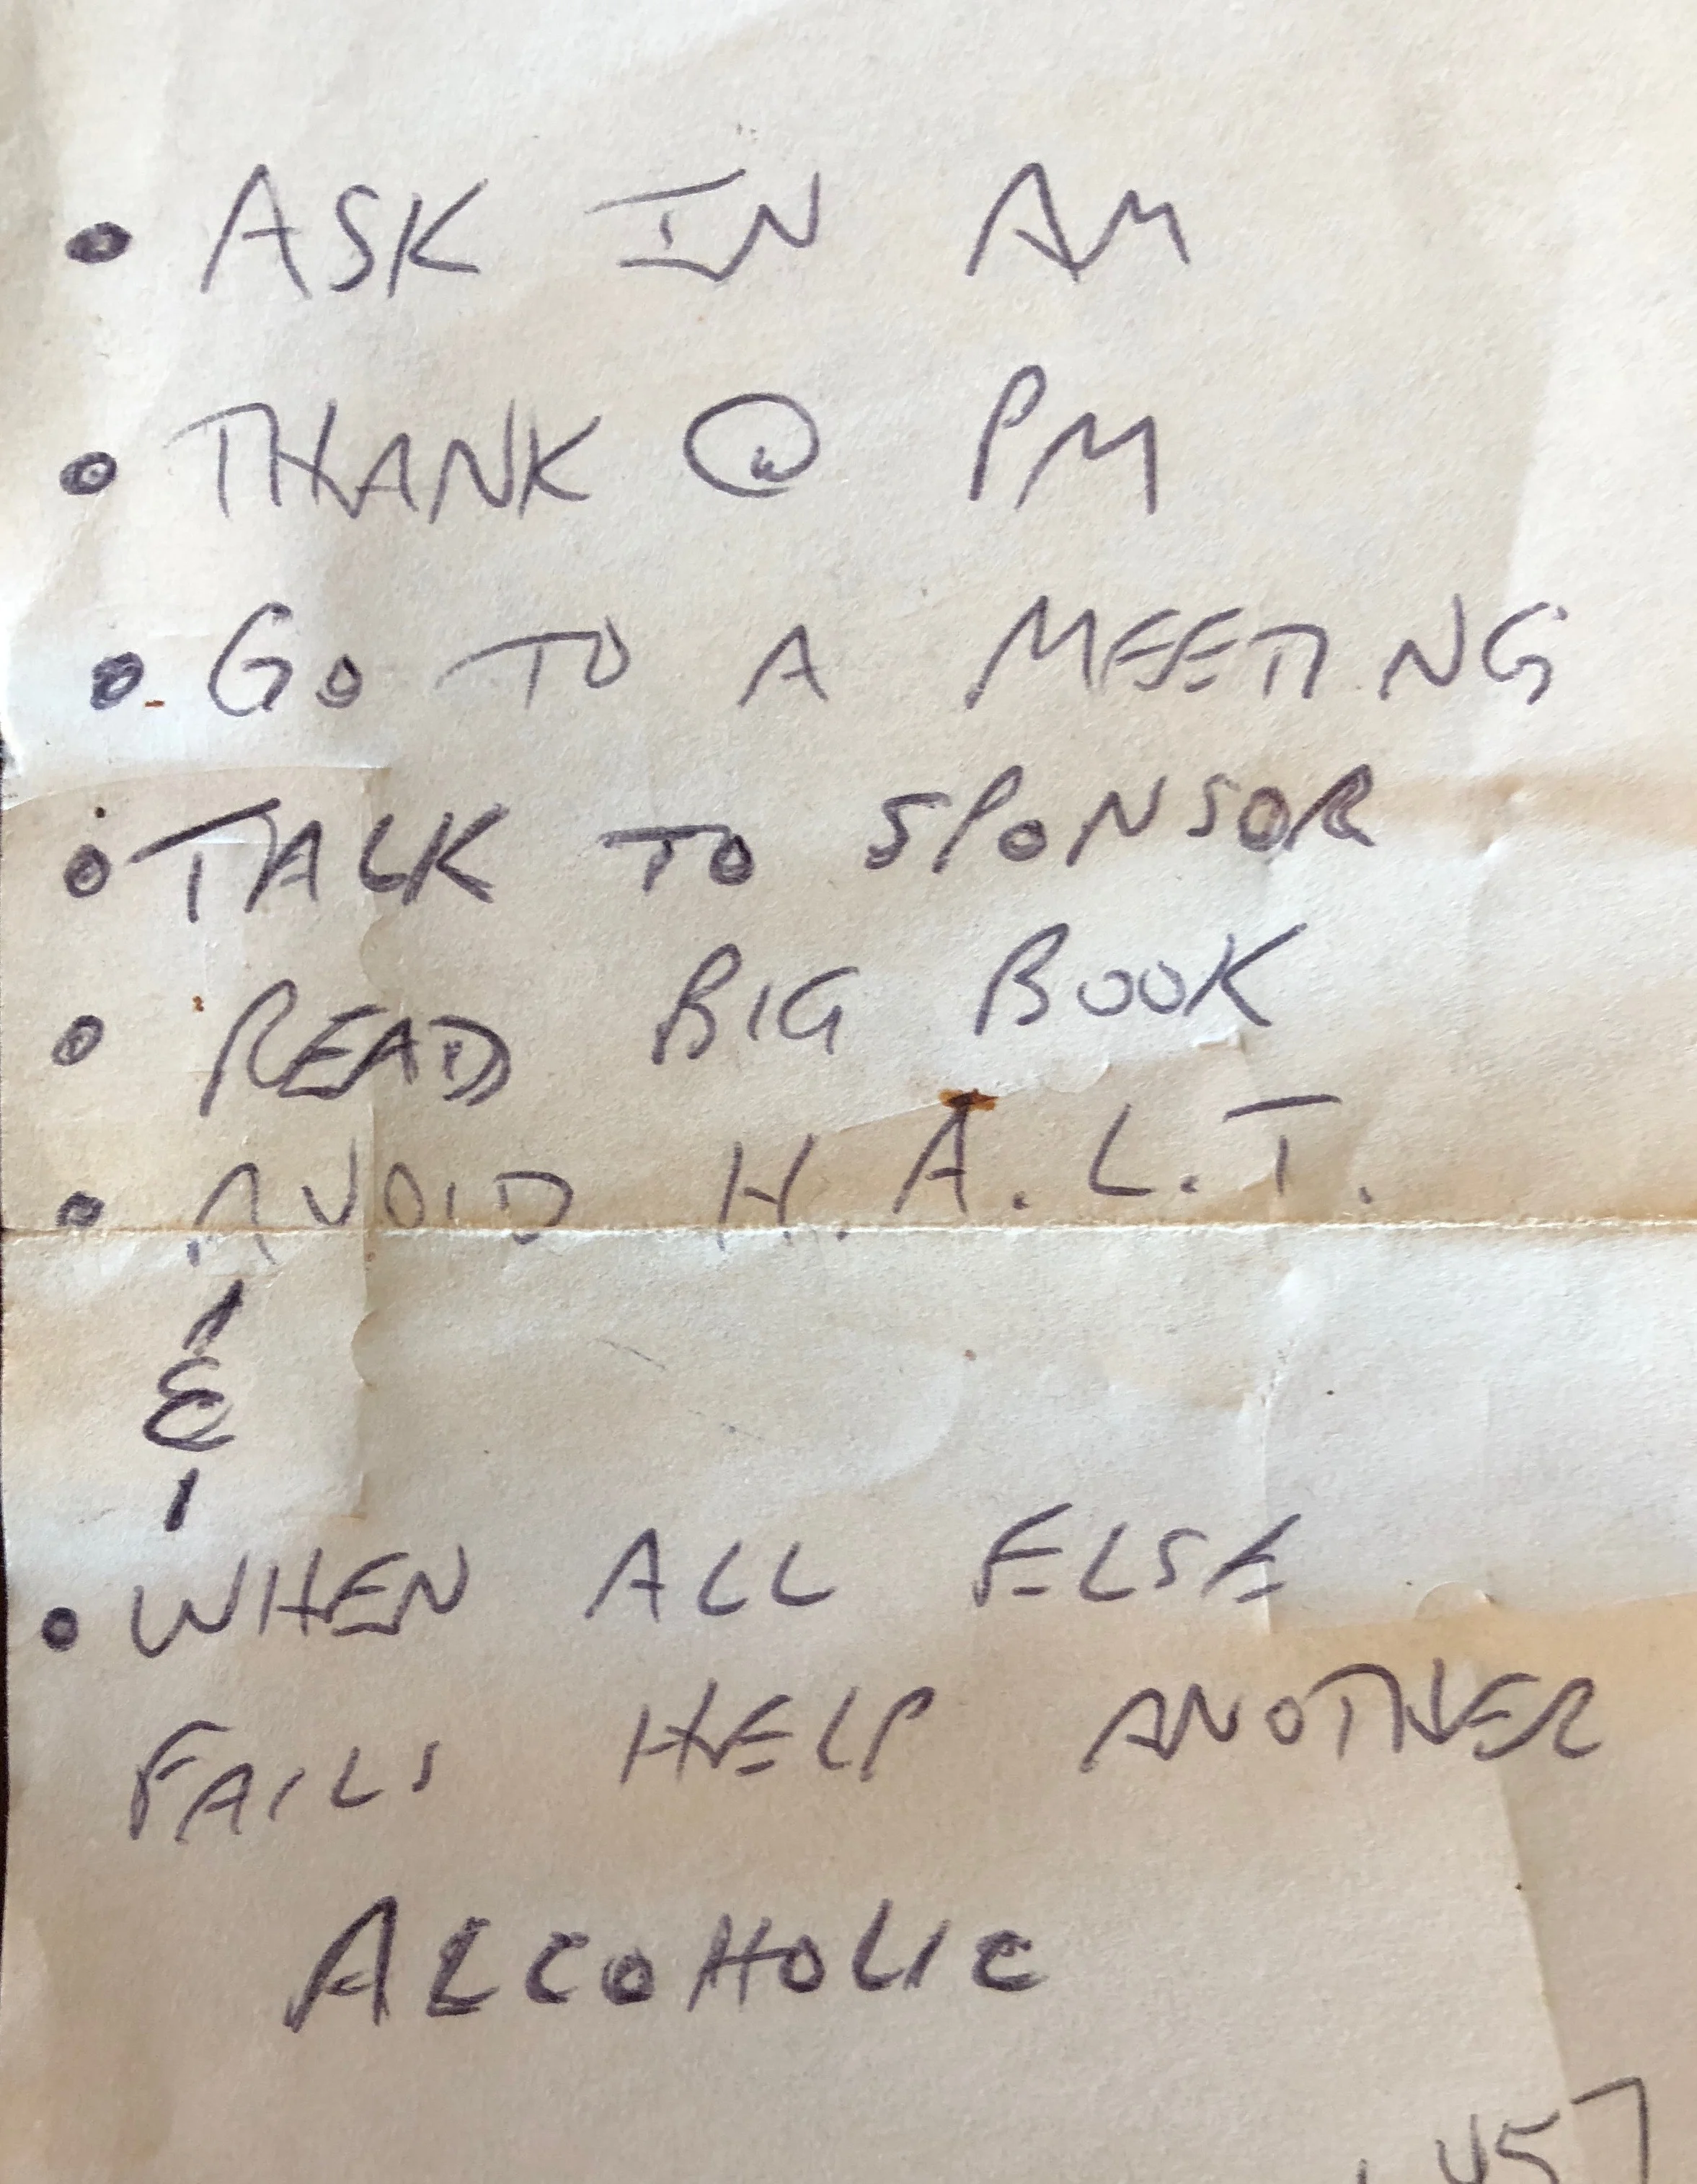 • ASK IN AM
• THANK @ PM
• GO TO A MEETING
• TALK TO SPONSOR
• READ BIG BOOK
• AVOID H.A.L.T.
&
• WHEN ALL ELSE
FAILS HELP ANOTHER
ALCOHOLIC
457